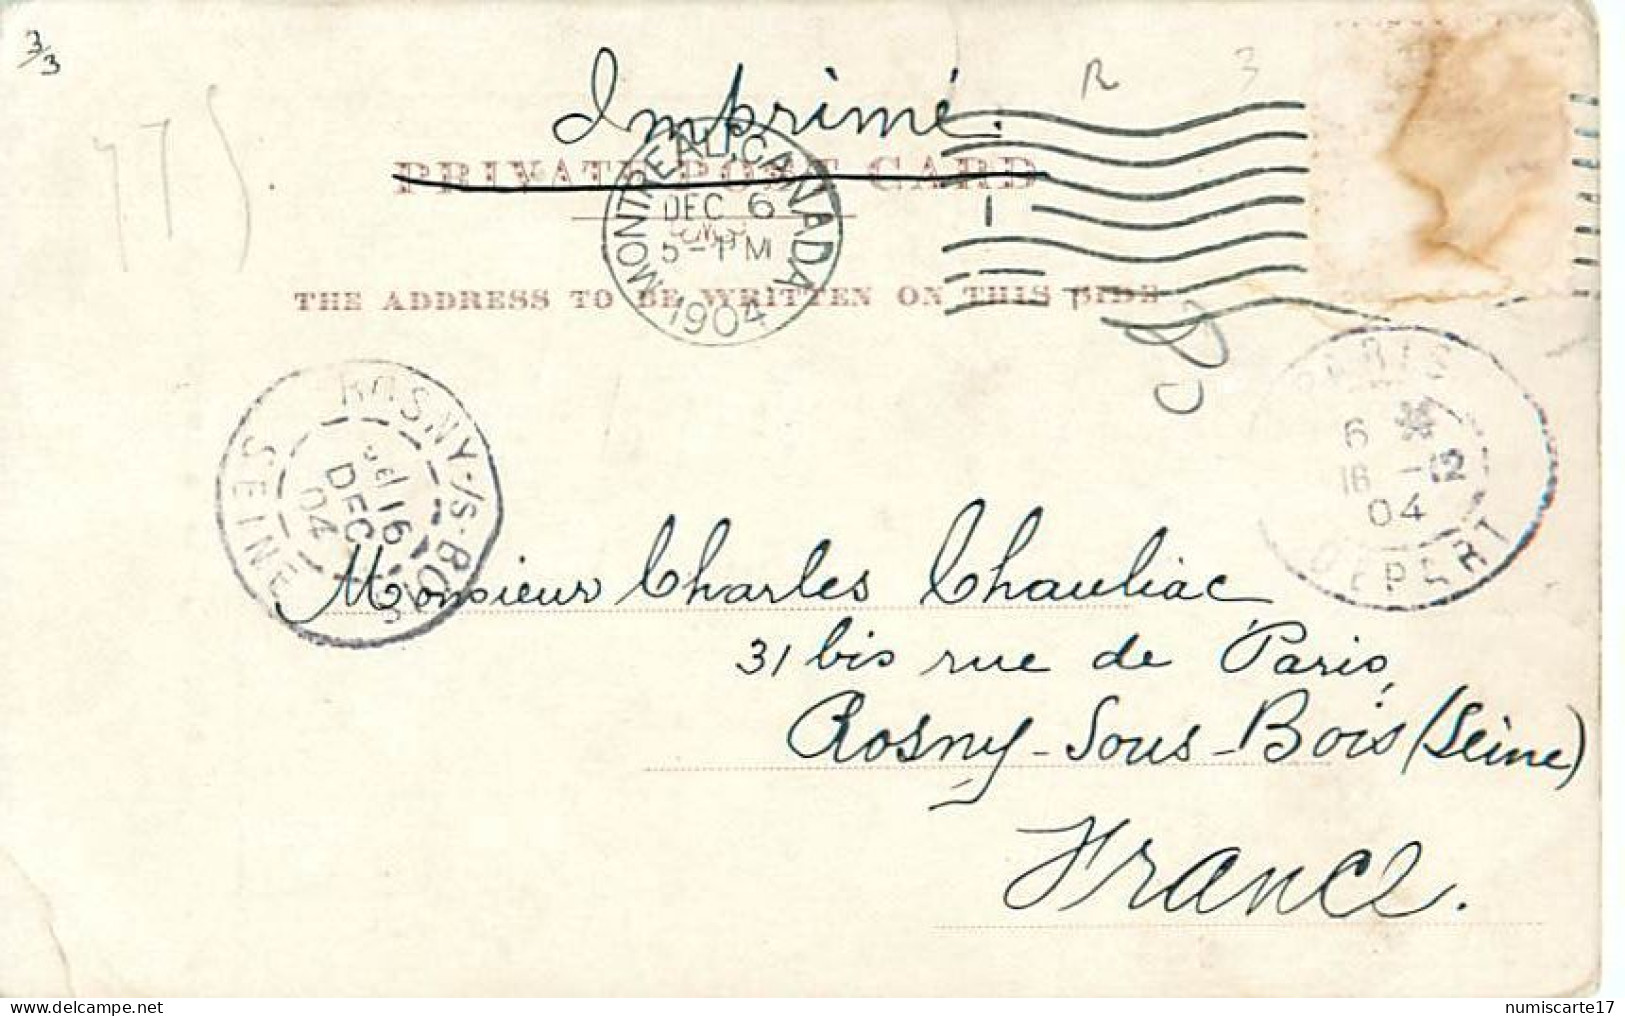 3/3
R 3
Imprimé.
775
PRIVATE POST CARD
MONTREAL, CANADA
DEC 6
5-PM
1904
THE ADDRESS TO BE WRITTEN ON THIS SIDE
ROSNY-/S-BOIS
SEINE
16
DEC
04
PARIS
6 *
16 -12
04
DEPART
Monsieur Charles Chauliac
31 bis rue de Paris,
Rosny-Sous-Bois (Seine)
France.
numiscarte17